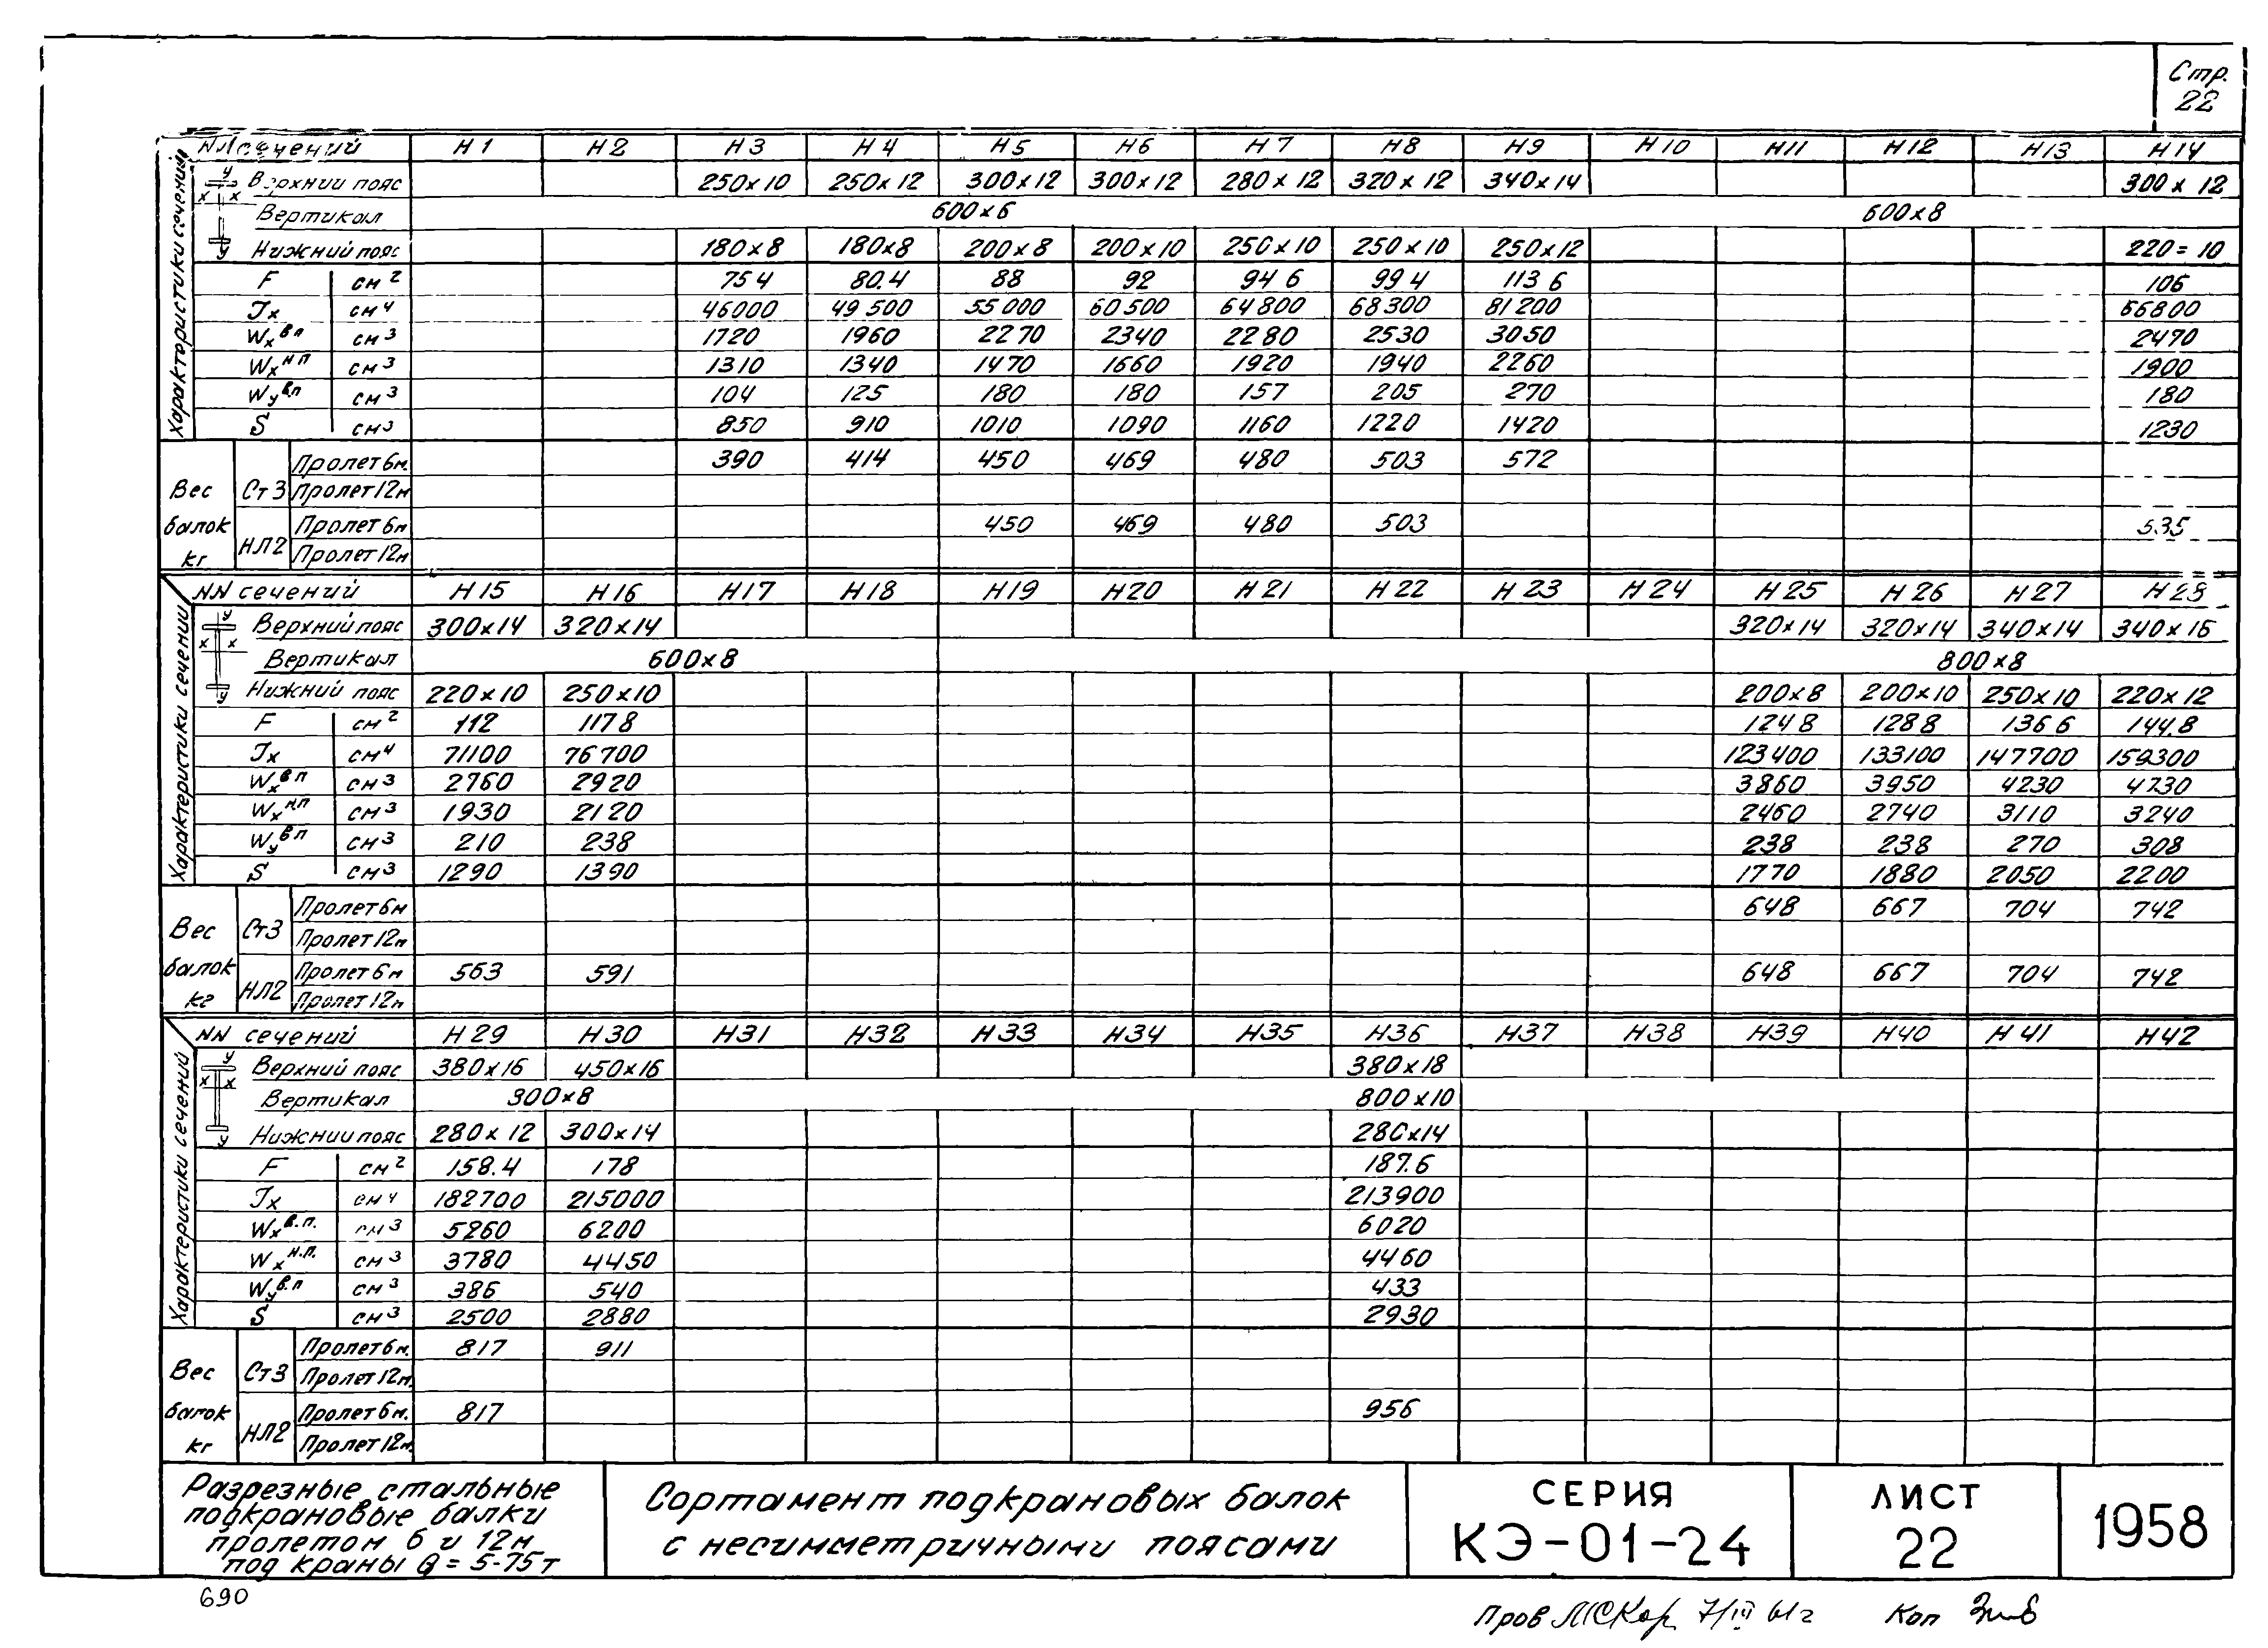 Стр.
22
NN сечений Н1 Н2 Н3 Н4 Н5 Н6 Н7 Н8 Н9 Н10 Н11 Н12 Н13 Н14
Характеристики сечения
у
х х
у
Верхний пояс 250х10 250х12 300х12 300х12 280х12 320х12 340х14 300х12
Вертикал 600х6 600х8
Нижний пояс 180х8 180х8 200х8 200х10 250х10 250х10 250х12 220=10
F см2 75 4 80.4 88 92 94 6 99 4 113 6 106
Jx см4 46000 49500 55000 60500 64800 68300 81200 66800
Wx вп см3 1720 1960 2270 2340 2280 2530 3050 2470
Wx нп см3 1310 1340 1470 1660 1920 1940 2260 1900
Wу в.п см3 104 125 180 180 157 205 270 180
S см3 850 910 1010 1090 1160 1220 1420 1230
Вес балок кг
Ст3 Пролет 6м. 390 414 450 469 480 503 572
Пролет 12м
НЛ2 Пролет 6м 450 469 480 503 535
Пролет 12м
NN сечений Н15 Н16 Н17 Н18 Н19 Н20 Н21 Н22 Н23 Н24 Н25 Н26 Н27 Н28
Характеристики сечений
у
х х
у
Верхний пояс 300х14 320х14 320х14 320х14 340х14 340х16
Вертикал 600х8 800х8
Нижний пояс 220х10 250х10 200х8 200х10 250х10 220х12
F см2 112 117 8 124 8 128 8 136 6 144.8
Jx см4 71100 76700 123400 133100 147700 159300
Wx вп см3 2760 2920 3860 3950 4230 4730
Wx нп см3 1930 2120 2460 2740 3110 3240
Wу вп см3 210 238 238 238 270 308
S см3 1290 1390 1770 1880 2050 2200
Вес балок кг
Ст3 Пролет 6м 648 667 704 742
Пролет 12м
НЛ2 Пролет 6м 563 591 648 667 704 742
Пролет 12м
NN сечений Н29 Н30 Н31 Н32 Н33 Н34 Н35 Н36 Н37 Н38 Н39 Н40 Н41 Н42
Характеристики сечений
у
х х
у
Верхний пояс 380х16 450х16 380х18
Вертикал 300х8 800х10
Нижний пояс 280х12 300х14 280х14
F см2 158.4 178 187.6
Jx см4 182700 215000 213900
Wx в.п. см3 5260 6200 6020
Wx н.п. см3 3780 4450 4460
Wу в.п см3 386 540 433
S см3 2500 2880 2930
Вес балок кг
Ст3 Пролет 6м. 817 911
Пролет 12м.
НЛ2 Пролет 6м. 817 956
Пролет 12м.
Разрезные стальные
подкрановые балки
пролетом 6 и 12м
под краны Q = 5-75т
Сортамент подкрановых балок
с несимметричными поясами
СЕРИЯ
КЭ-01-24
ЛИСТ
22
1958
690
Пров 7/III 61г Коп